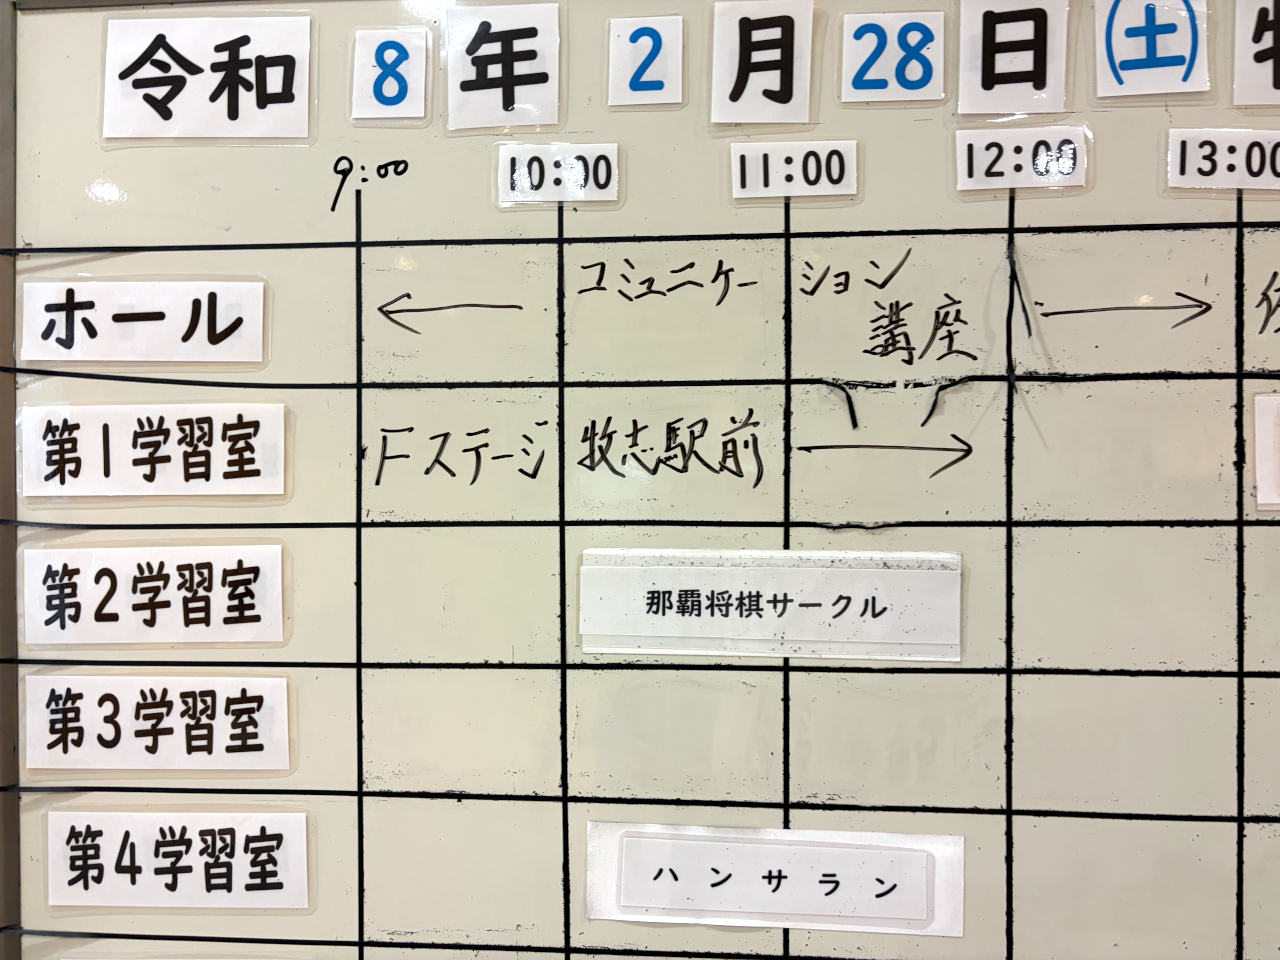 令和 8 年 2 月 28 日 (土)
9:00 10:00 11:00 12:00 13:00
ホール
コミュニケーション
講座
第1学習室 Fステージ 牧志駅前
第2学習室 那覇将棋サークル
第3学習室
第4学習室 ハンサラン